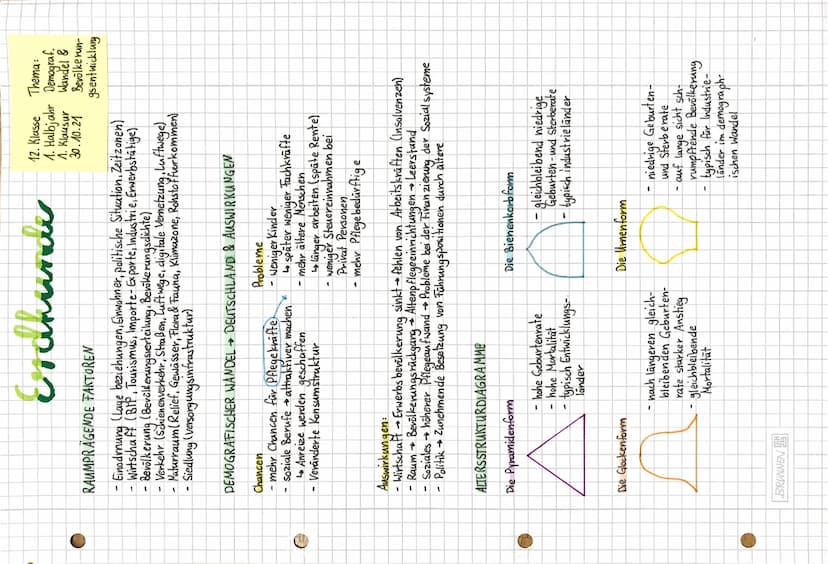 Erdkunde
12. Klasse
1. Halbjahr
1. Klausur
30.10.21
Thema:
Demograf.
Wandel &
Bevölkerun-
gsentwicklung
RAUMPRÄGENDE FAKTOREN
- Einordnung (Lage beziehungen, Einwohner, politische Situation, Zeitzonen)
- Wirtschaft (BIP, Tourismus, Importe-Exporte, Industrie, Erwerbstätige)
- Bevölkerung (Bevölkerungsverteilung, Bevölkerungsdichte)
- Verkehr (Schienenverkehr, Straßen, Luftwege, digitale Vernetzung, Luftwege)
- Naturraum (Relief, Gewässer, Flora & Fauna, Klimazone, Rohstoffvorkommen)
- Siedlung (Versorgungsinfrastruktur)
DEMOGRAFISCHER WANDEL → DEUTSCHLAND & AUSWIRKUNGEN
Chancen
- mehr Chancen für Pflegekräfte
- soziale Berufe → attraktiver machen
↳ Anreize werden geschaffen
- Veränderte Konsumstruktur
Probleme
- weniger Kinder
↳ später weniger Fachkräfte
- mehr ältere Menschen
↳ länger arbeiten (späte Rente)
- weniger Steuereinnahmen bei
Privat Personen
- mehr Pflegebedürftige
Auswirkungen:
- Wirtschaft → Erwerbsbevölkerung sinkt → Fehlen von Arbeitskräften (Insolvenzen)
- Raum → Bevölkerungsrückgang → Altenpflegeeinrichtungen → Leerstand
- Soziales → höherer Pflegeaufwand → Probleme bei der Finanzierung der Sozialsysteme
- Politik → Zunehmende Besetzung von Führungspositionen durch ältere
ALTERSSTRUKTURDIAGRAMME
Die Pyramidenform
- hohe Geburtenrate
- hohe Mortalität
- typisch Entwicklungs-
länder
Die Bienenkorbform
- gleichbleibend niedrige
Geburten- und Sterberate
- typisch Industrieländer
Die Glockenform
- nach längeren gleich-
bleibenden Geburten-
rate starker Anstieg
- gleichbleibende
Mortalität
Die Urnenform
- niedrige Geburten-
und Sterberate
- auf lange sicht sch-
rumpfende Bevölkerung
- typisch für Industrie-
länder im demograph-
ischen Wandel
BRUNNEN